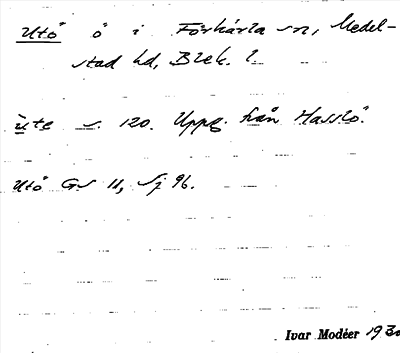 Utö ö i Förkärla sn, Medel-
stad hd, Blek. l.
ùte s. 120. Uppg. från Hasslö.
Utö GS 11, Sj 96.
Ivar Modéer 193